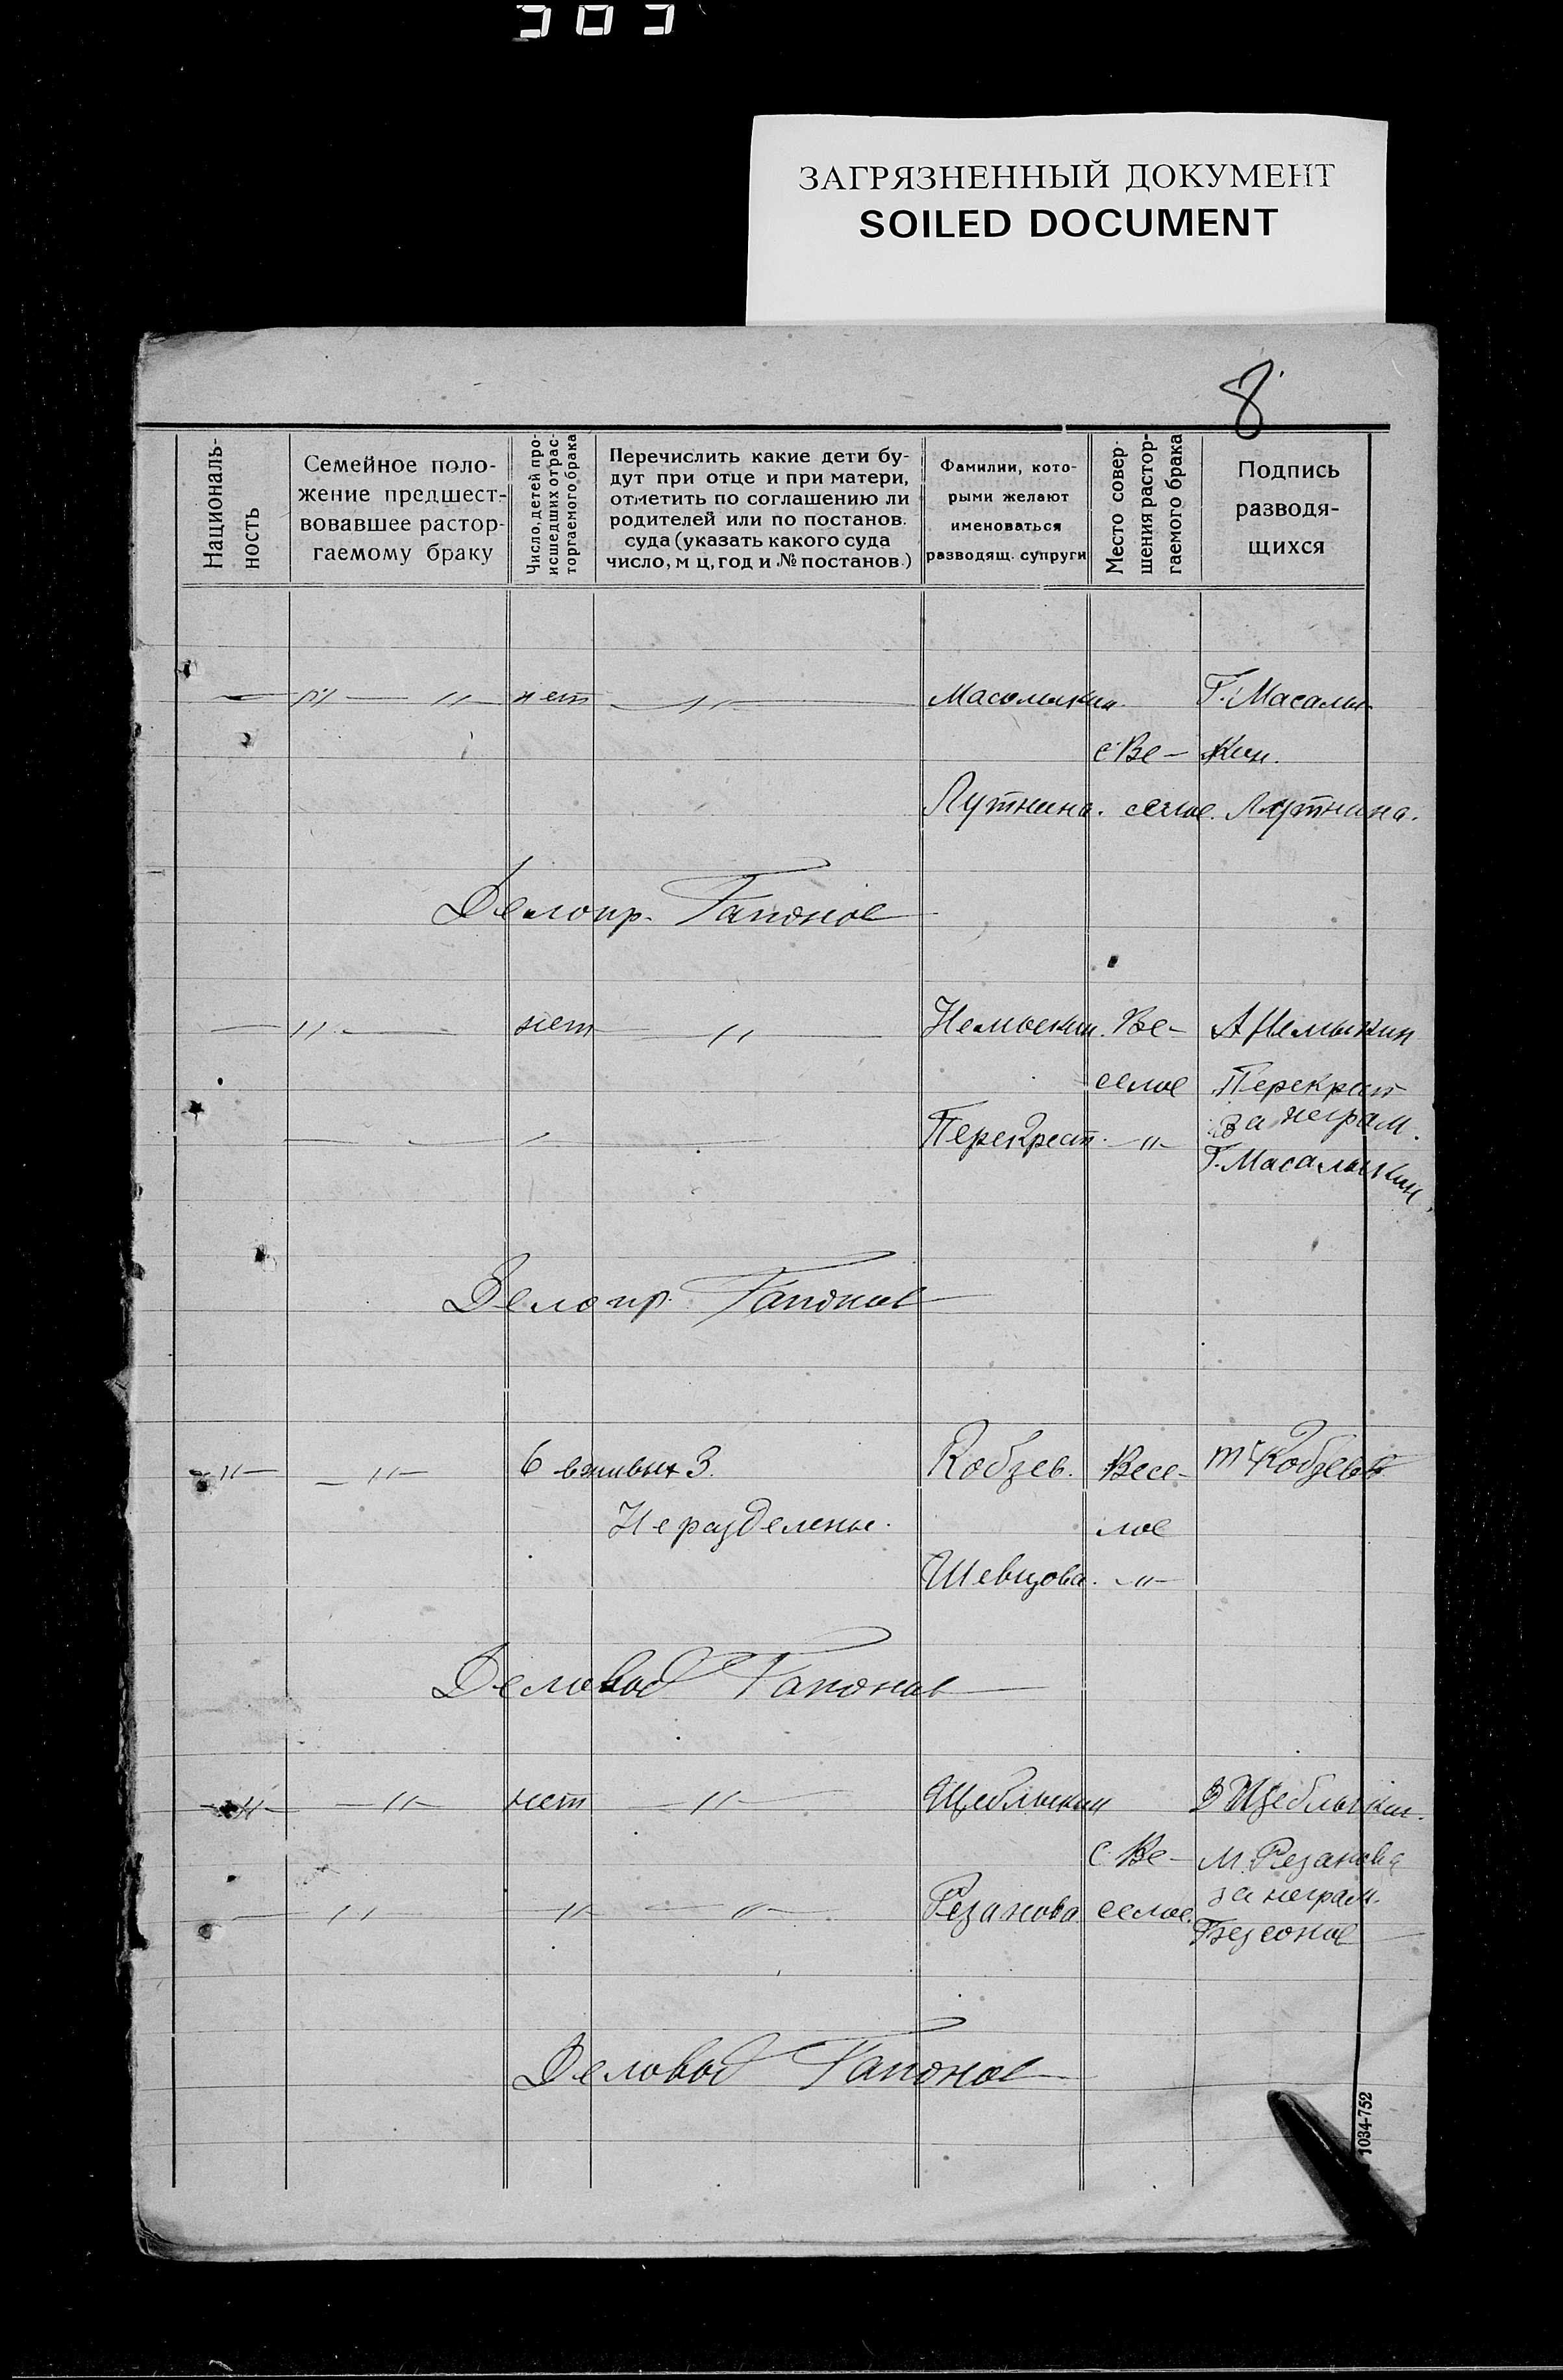 ЗАГРЯЗНЕННЫЙ ДОКУМЕНТ
SOILED DOCUMENT
8
Националь-
ность
Семейное поло-
жение предшест-
вовавшее растор-
гаемому браку
Число, детей про-
исшедших от рас-
торгаемого брака
Перечислить какие дети бу-
дут при отце и при матери,
отметить по соглашению ли
родителей или по постанов.
суда (указать какого суда
число, м ц, год и № постанов.)
Фамилии, кото-
рыми желают
именоваться
разводящ. супруги
Место совер-
шения растор-
гаемого брака
Подпись
разводя-
щихся
— " — " — нет — " — Масалыкин Г. Масалы-
с Ве- кин.
Лутнина. селое. Лутнина.
Делопр. Гапонов
— " — нет — " — Немыкин. Ве- А Немыкин
селое Перекрест
за неграм.
Перекрест. — " — Г. Масалыкин
Делопр. Гапонов
— " — — " — 6 вживых 3. Кобзев. Весе- Кобзевъ
Не разделены. лое
Шевцова. — " —
Деловод Гапонов
— " — — " — нет — " — Щеблыкин З Щеблыкин.
С. Ве- М. Резанова
— " — " — " — Резанова селое. за неграм.
Бессонов
Деловод Гапонов
1034-752